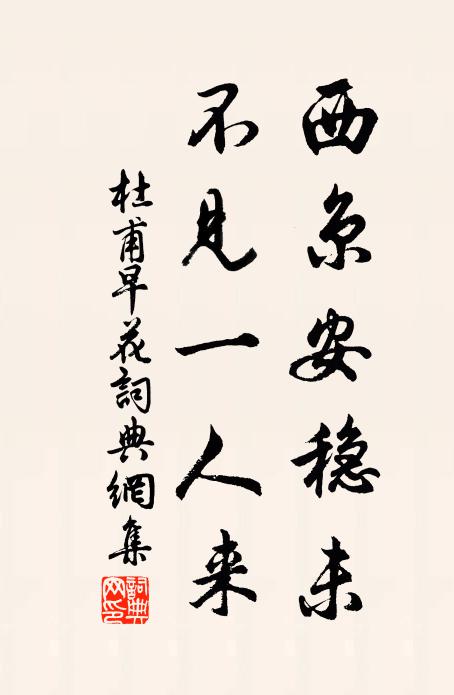 西京安稳未
不见一人来
杜甫早花詞典網集
詞典网印